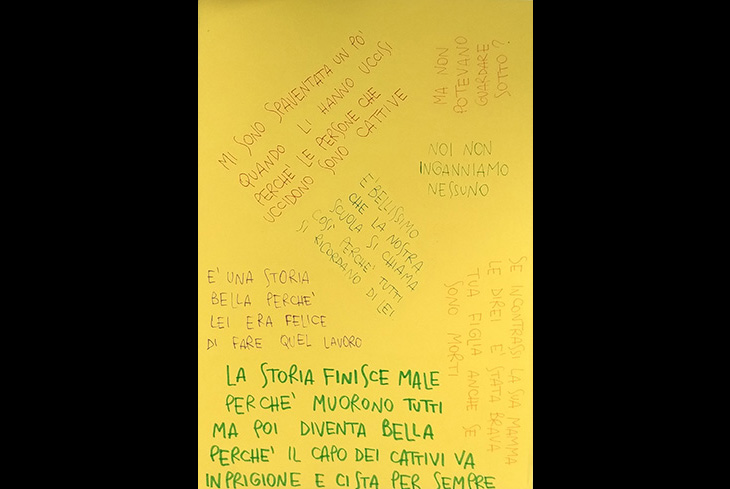 MI SONO SPAVENTATA UN PO'
QUANDO LI HANNO UCCISI
PERCHE' LE PERSONE CHE
UCCIDONO SONO CATTIVE
MA NON
POTEVANO
GUARDARE
SOTTO?
NOI NON
INGANNIAMO
NESSUNO
E' BELLISSIMO
CHE LA NOSTRA
SCUOLA SI CHIAMA
COSI' PERCHE' TUTTI
SI RICORDANO DI LEI
E' UNA STORIA
BELLA PERCHE'
LEI ERA FELICE
DI FARE QUEL LAVORO
SE INCONTRASSI LA SUA MAMMA
LE DIREI E' STATA BRAVA
TUA FIGLIA ANCHE SE
SONO MORTI
LA STORIA FINISCE MALE
PERCHE' MUORONO TUTTI
MA POI DIVENTA BELLA
PERCHE' IL CAPO DEI CATTIVI VA
IN PRIGIONE E CI STA PER SEMPRE